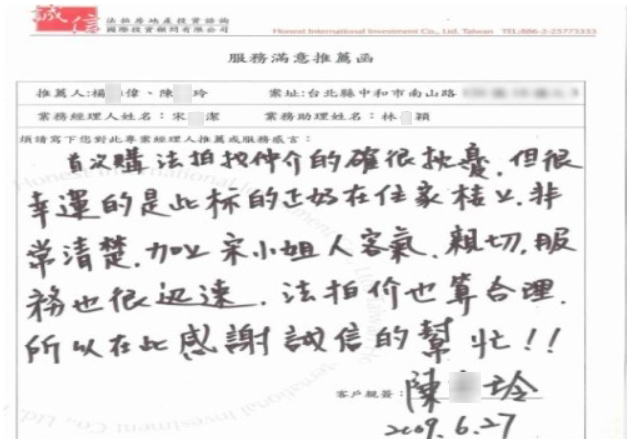 誠信 法拍房地產投資諮詢
國際投資顧問有限公司
Honest International Investment Co., Ltd. Taiwan TEL:886-2-25773333
服務滿意推薦函
推薦人:楊 偉、陳 玲 案址:台北縣中和市南山路
業務經理人姓名:宋 潔 業務助理姓名:林 穎
煩請寫下您對此專案經理人推薦或服務感言:
首次購法拍找仲介的確很耽憂,但很
幸運的是此标的正好在住家樓上,非
常清楚,加上宋小姐人客氣,親切,服
務也很迅速,法拍价也算合理,
所以在此感謝誠信的幫忙!!
客戶親簽:陳 玲
2009.6.27